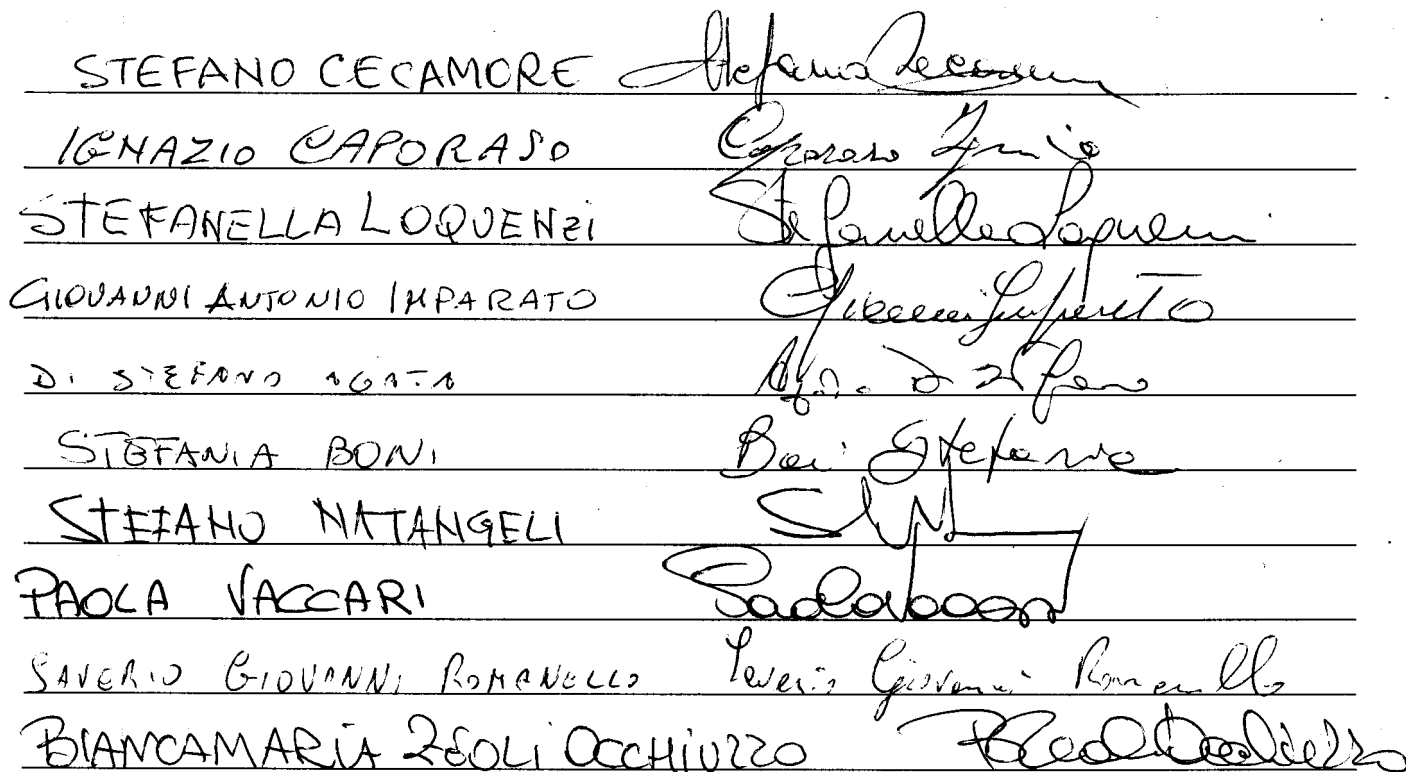 STEFANO CECAMORE Stefano Cecamore
IGNAZIO CAPORASO Caporaso Ignazio
STEFANELLA LOQUENZi Stefanella Loquenzi
GIOVANNI ANTONIO IMPARATO Giovanni Imparato
DI STEFANO AGATA Agata Di Stefano
STEFANIA BONI Boni Stefania
STEFANO NATANGELI
PAOLA VACCARI Paola Vaccari
SAVERIO GIOVANNI ROMANELLO Saverio Giovanni Romanello
BIANCAMARIA ZEOLI OCCHIUZZO